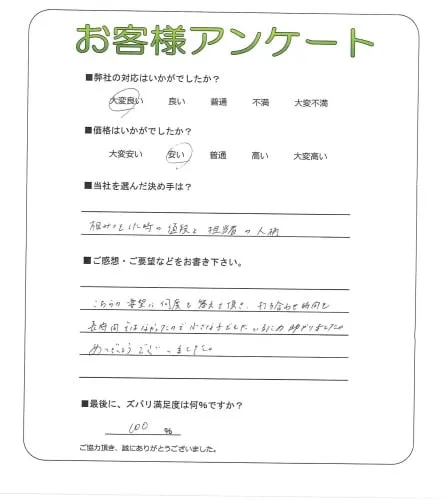 お客様アンケート
■弊社の対応はいかがでしたか？
大変良い 良い 普通 不満 大変不満
■価格はいかがでしたか？
大変安い 安い 普通 高い 大変高い
■当社を選んだ決め手は？
値段と担当者の人柄
■ご感想・ご要望などをお書き下さい。
こちらの要望に何度も答えて頂き、打ち合わせ時間も
長時間
ありがとうございました
■最後に、ズバリ満足度は何%ですか？
100 %
ご協力頂き、誠にありがとうございました。